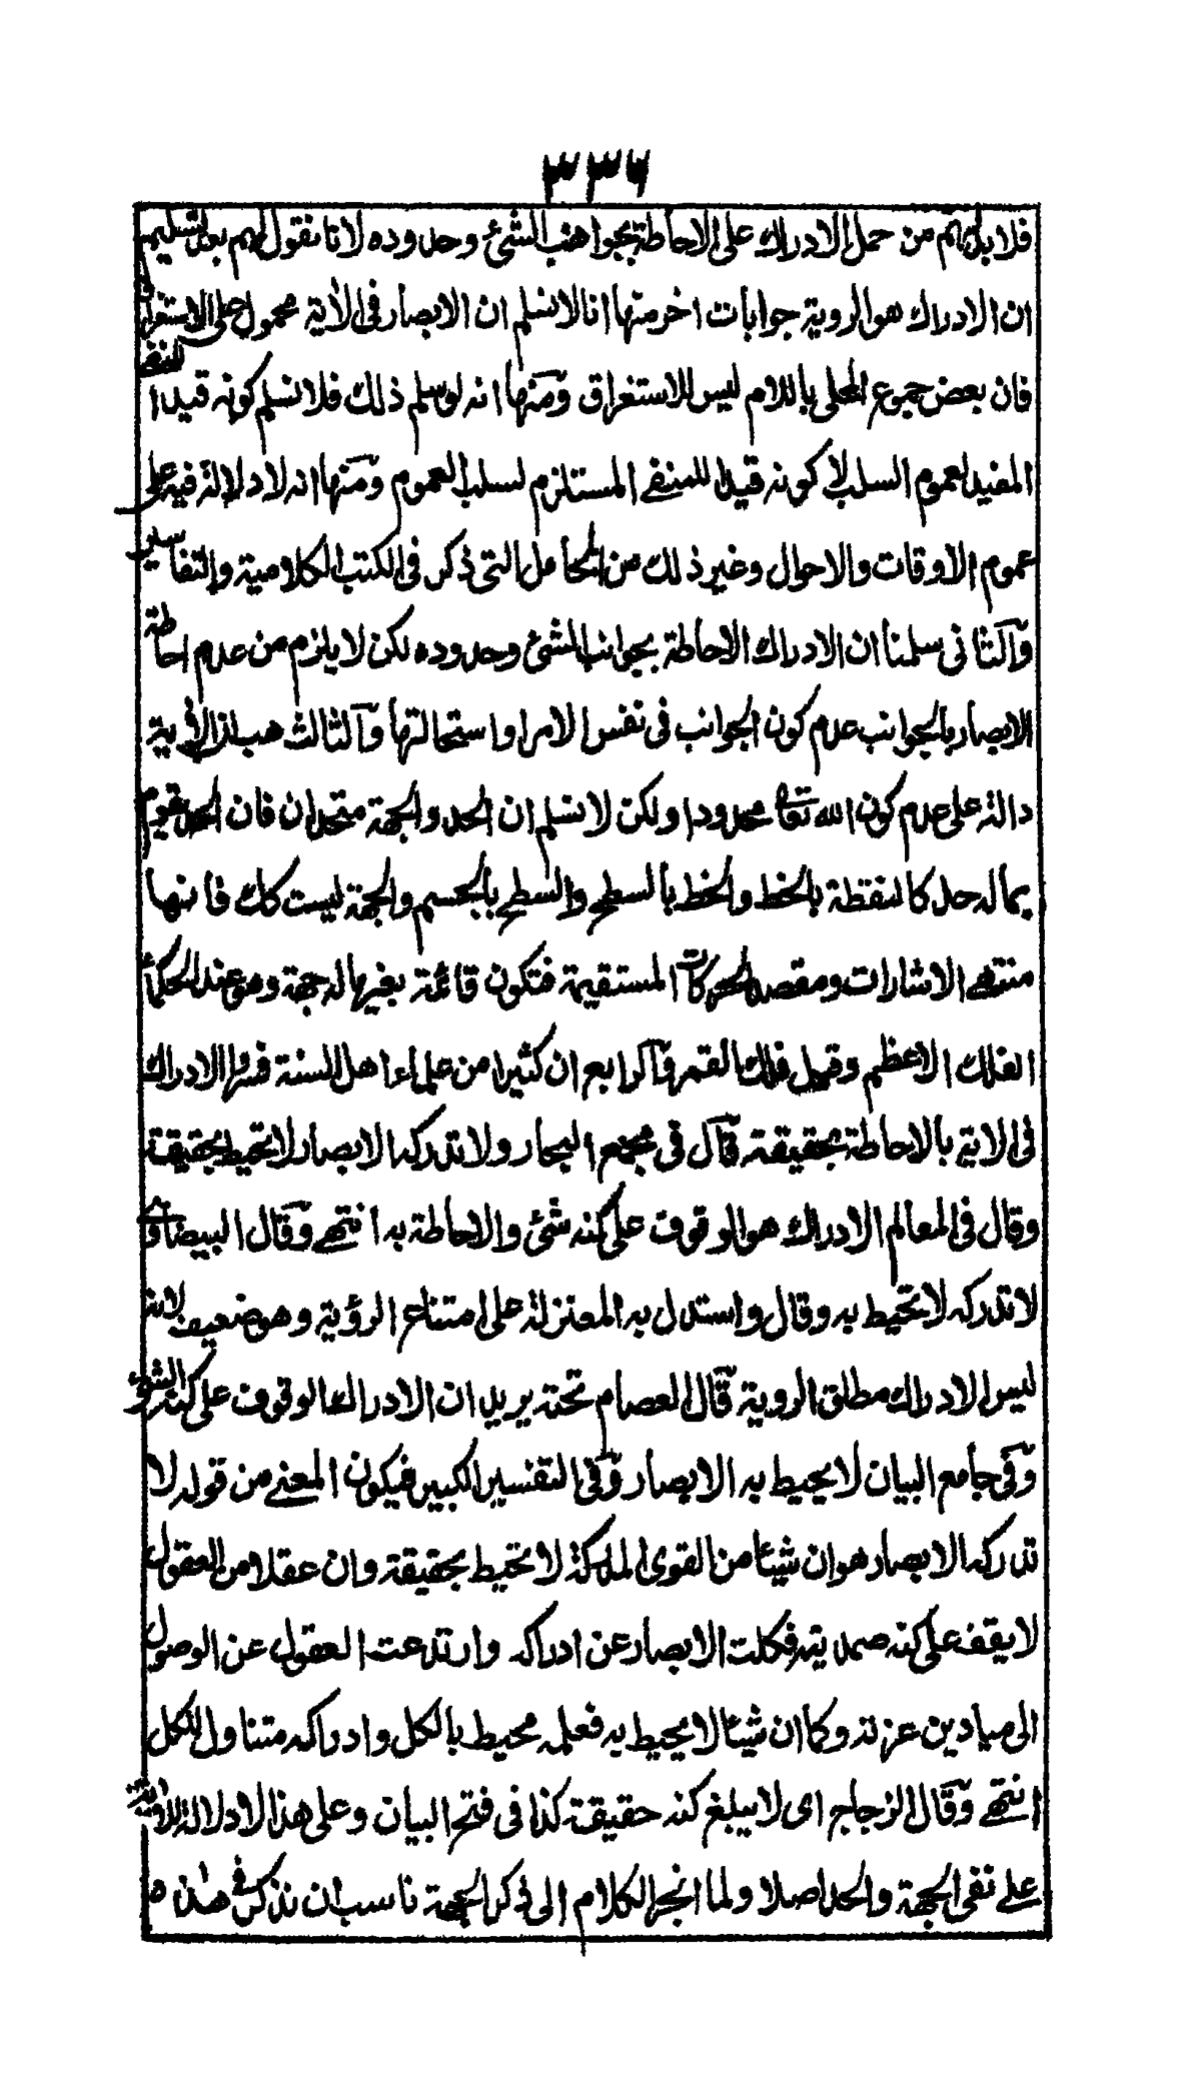 ٣٣٦
فلا بد لهم من حمل الادراك على الاحاطة بجوانب الشئ وحدوده لانا نقول لهم بعد تسليم
ان الادراك هو الروية جوابات اخر منها انا لانسلم ان الابصار فى الأية محمول على الاستغراق
فان بعض جموع المحلى باللام ليس للاستغراق ومنها انه لو سلم ذلك فلا نسلم كونه قيدا للنفى
المفيد لعموم السلب لا كونه قيدا للمنفے المستلزم لسلب العموم ومنها انه لا دلالة فيه على
عموم الاوقات والاحوال وغير ذلك من المحامل التى ذكر فى الكتب الكلامية والتفاسير
والثانى سلمنا ان الادراك الاحاطة بجوانب الشئ وحدوده لكن لا يلزم من عدم احاطة
الابصار بالجوانب عدم كون الجوانب فى نفس الامر او استحالتها والثالث هب ان الأية
دالة على عدم كون الله تعالى محدودا ولكن لا نسلم ان الحد والجهة متحدان فان الحد يقوم
بماله حد كالنقطة بالخط والخط بالسطح والسطح بالجسم والجهة ليست كك فانها
منتهے الاشارات ومقصد الحركات المستقيمة فتكون قائمة بغيرها له جهة وهى عند الحكماء
الفلك الاعظم وقيل فلك القمر والرابع ان كثيرا من علماء اهل السنة فسروا الادراك
فى الاية بالاحاطة بحقيقته قال فى مجمع البحار ولا تدركه الابصار لا تحيط بحقيقته
وقال فى المعالم الادراك هو الوقوف على كنه شئ والاحاطة به انتهے وقال البيضاوے
لا تدركه لا تحيط به وقال واستدل به المعتزلة على امتناع الرؤية وهو ضعيف لانه
ليس الادراك مطلق الروية قال العصام تحته يريد ان الادراك الوقوف على كنه الشئ
وفى جامع البيان لا يحيط به الابصار وفى التفسير الكبير فيكون المعنے من قوله لا
تدركه الابصار هو ان شيئا من القوى المدركة لا تحيط بحقيقته وان عقلا من العقول
لا يقف على كنه صمديته فكلت الابصار عن ادراكه وارتدعت العقول عن الوصول
الى ميادين عزته وكما ان شيئا لا يحيط به فعلمه محيط بالكل وادراكه متناول للكل
انتهے وقال الزجاج اى لا يبلغ كنه حقيقته كذا فى فتح البيان وعلى هذا لا دلالة للأية
علے نفى الجهة والحد اصلا ولما انجر الكلام الى ذكر الجهة ناسب ان نذكر فى هذه